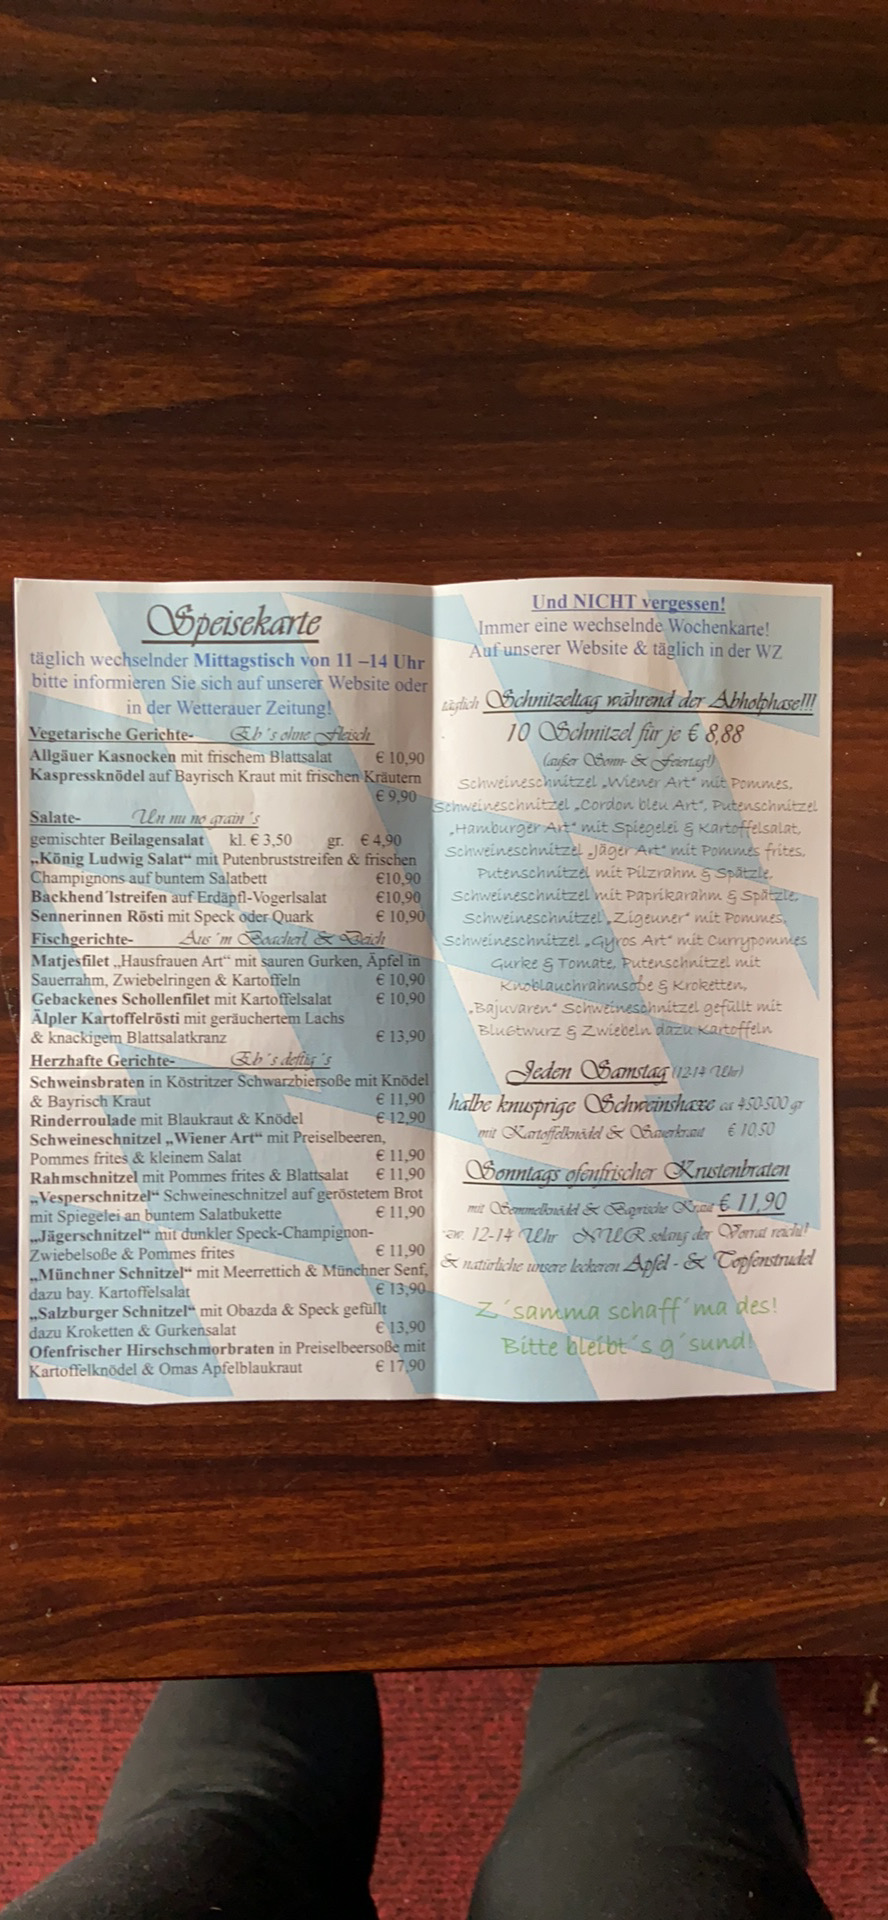 Speisekarte
täglich wechselnder Mittagstisch von 11 –14 Uhr
bitte informieren Sie sich auf unserer Website oder
in der Wetterauer Zeitung!
Vegetarische Gerichte- Eb´s ohne Fleisch
Allgäuer Kasnocken mit frischem Blattsalat € 10,90
Kaspressknödel auf Bayrisch Kraut mit frischen Kräutern
€ 9,90
Salate- Un nu no grain´s
gemischter Beilagensalat kl. € 3,50 gr. € 4,90
„König Ludwig Salat“ mit Putenbruststreifen & frischen
Champignons auf buntem Salatbett €10,90
Backhend´lstreifen auf Erdäpfl-Vogerlsalat €10,90
Sennerinnen Rösti mit Speck oder Quark € 10,90
Fischgerichte- Aus´m Boacherl & Deich
Matjesfilet „Hausfrauen Art“ mit sauren Gurken, Äpfel in
Sauerrahm, Zwiebelringen & Kartoffeln € 10,90
Gebackenes Schollenfilet mit Kartoffelsalat € 10,90
Älpler Kartoffelrösti mit geräuchertem Lachs
& knackigem Blattsalatkranz € 13,90
Herzhafte Gerichte- Eb´s deftig´s
Schweinsbraten in Köstritzer Schwarzbiersoße mit Knödel
& Bayrisch Kraut € 11,90
Rinderroulade mit Blaukraut & Knödel € 12,90
Schweineschnitzel „Wiener Art“ mit Preiselbeeren,
Pommes frites & kleinem Salat € 11,90
Rahmschnitzel mit Pommes frites & Blattsalat € 11,90
„Vesperschnitzel“ Schweineschnitzel auf geröstetem Brot
mit Spiegelei an buntem Salatbukette € 11,90
„Jägerschnitzel“ mit dunkler Speck-Champignon-
Zwiebelsoße & Pommes frites € 11,90
„Münchner Schnitzel“ mit Meerrettich & Münchner Senf,
dazu bay. Kartoffelsalat € 13,90
„Salzburger Schnitzel“ mit Obazda & Speck gefüllt
dazu Kroketten & Gurkensalat € 13,90
Ofenfrischer Hirschschmorbraten in Preiselbeersoße mit
Kartoffelknödel & Omas Apfelblaukraut € 17,90
Und NICHT vergessen!
Immer eine wechselnde Wochenkarte!
Auf unserer Website & täglich in der WZ
täglich Schnitzeltag während der Abholphase!!!
10 Schnitzel für je € 8,88
(außer Sonn- & Feiertag!)
Schweineschnitzel „Wiener Art“ mit Pommes,
Schweineschnitzel „Cordon bleu Art“, Putenschnitzel
„Hamburger Art“ mit Spiegelei & Kartoffelsalat,
Schweineschnitzel „Jäger Art“ mit Pommes frites,
Putenschnitzel mit Pilzrahm & Spätzle,
Schweineschnitzel mit Paprikarahm & Spätzle,
Schweineschnitzel „Zigeuner“ mit Pommes,
Schweineschnitzel „Gyros Art“ mit Currypommes
Gurke & Tomate, Putenschnitzel mit
Knoblauchrahmsoße & Kroketten,
„Bajuvaren“ Schweineschnitzel gefüllt mit
Blutwurz & Zwiebeln dazu Kartoffeln
Jeden Samstag (12-14 Uhr)
halbe knusprige Schweinshaxe ca 450-500 gr
mit Kartoffelknödel & Sauerkraut € 10,50
Sonntags ofenfrischer Krustenbraten
mit Semmelknödel & Bayrische Kraut € 11,90
zw. 12-14 Uhr NUR solang der Vorrat reicht!
& natürliche unsere leckeren Apfel - & Topfenstrudel
Z´samma schaff´ma des!
Bitte bleibt´s g´sund!